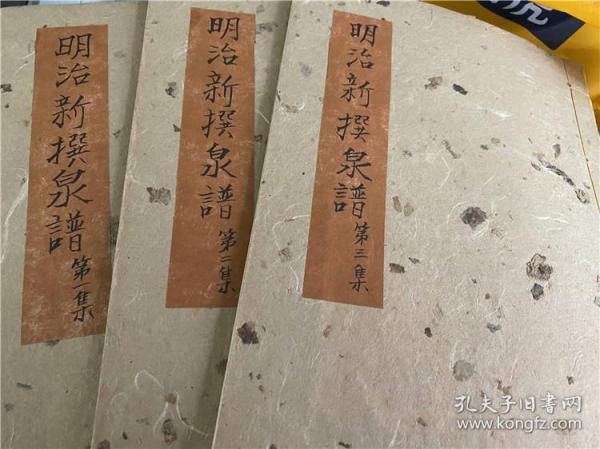 明治新撰泉譜 第一集
明治新撰泉譜 第二集
明治新撰泉譜 第三集
孔夫子旧书网
www.kongfz.com